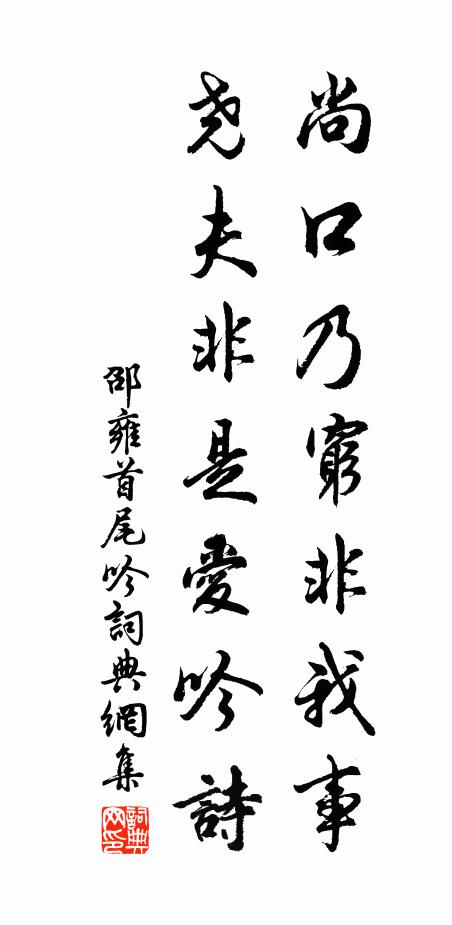 尚口乃窮非我事
堯夫非是愛吟詩
邵雍首尾吟詞典網集
詞典網印